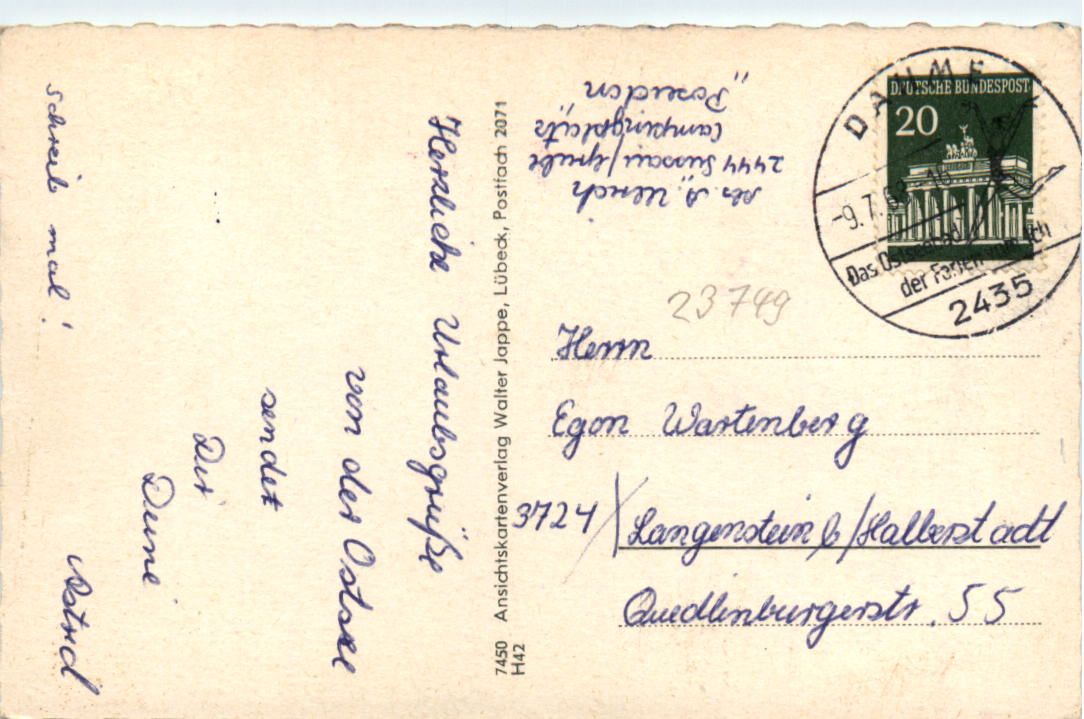 Herzliche Urlaubsgrüße
von der Ostsee
sendet
Dir
Deine
Astrid
schreib mal!
Abs. A. Ulrich
2444 Sussau/Grube
Campingplatz
"Poseidon"
7450 Ansichtskartenverlag Walter Jappe, Lübeck, Postfach 2071
H42
DEUTSCHE BUNDESPOST
20
DAHME
-9.7.
Das Ostseebad
der Farben
2435
23749
Herrn
Egon Wartenberg
3724 Langenstein b/Halberstadt
Quedlinburgerstr. 55